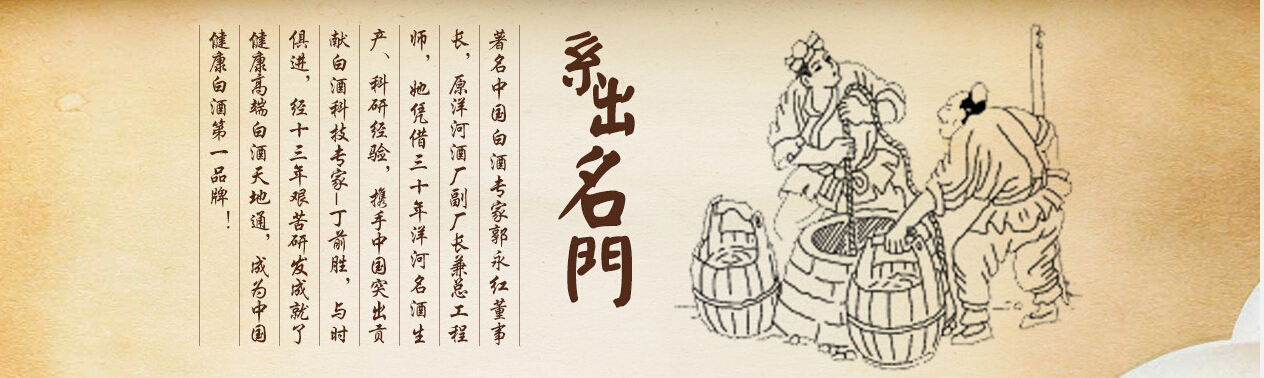 系出名門
著名中国白酒专家郭永红董事
长，原洋河酒厂副厂长兼总工程
师，她凭借三十年洋河名酒生
产、科研经验，携手中国突出贡
献白酒科技专家-丁前胜，与时
俱进，经十三年艰苦研发成就了
健康高端白酒天地通，成为中国
健康白酒第一品牌！